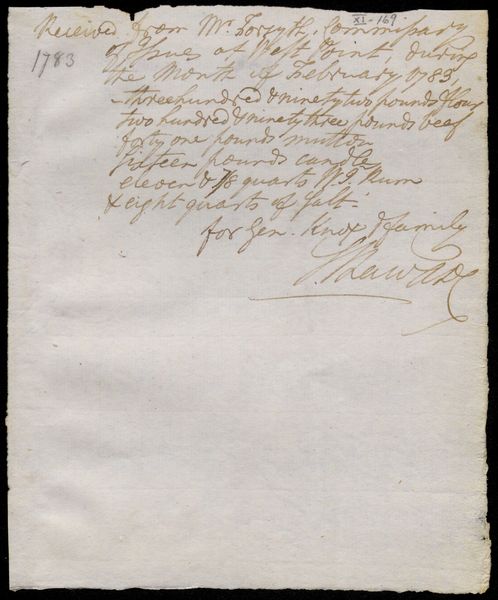 XI-169
Received from Mr. Forsyth, Commissary
1783
of Issues, at West Point, during
the Month of February 1783,
three hundred & ninety two pounds flour
two hundred & ninety three pounds beef
forty one pounds mutton
sixteen pounds candles
eleven & 7/8 quarts W. I. Rum
& eight quarts of salt.
for Gen. Knox & family
S Shaw ADC